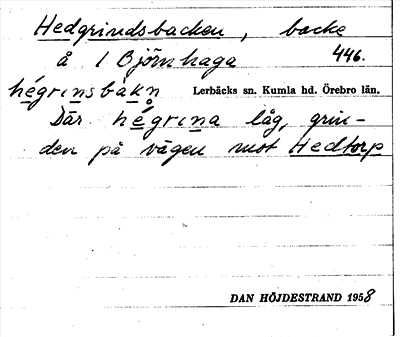 Hedgrindsbacken, backe
å 1 Björnhaga 446.
hégrinsbàkn Lerbäcks sn. Kumla hd. Örebro län.
Där hégrina låg, grin-
den på vägen mot Hedtorp
DAN HÖJDESTRAND 1958